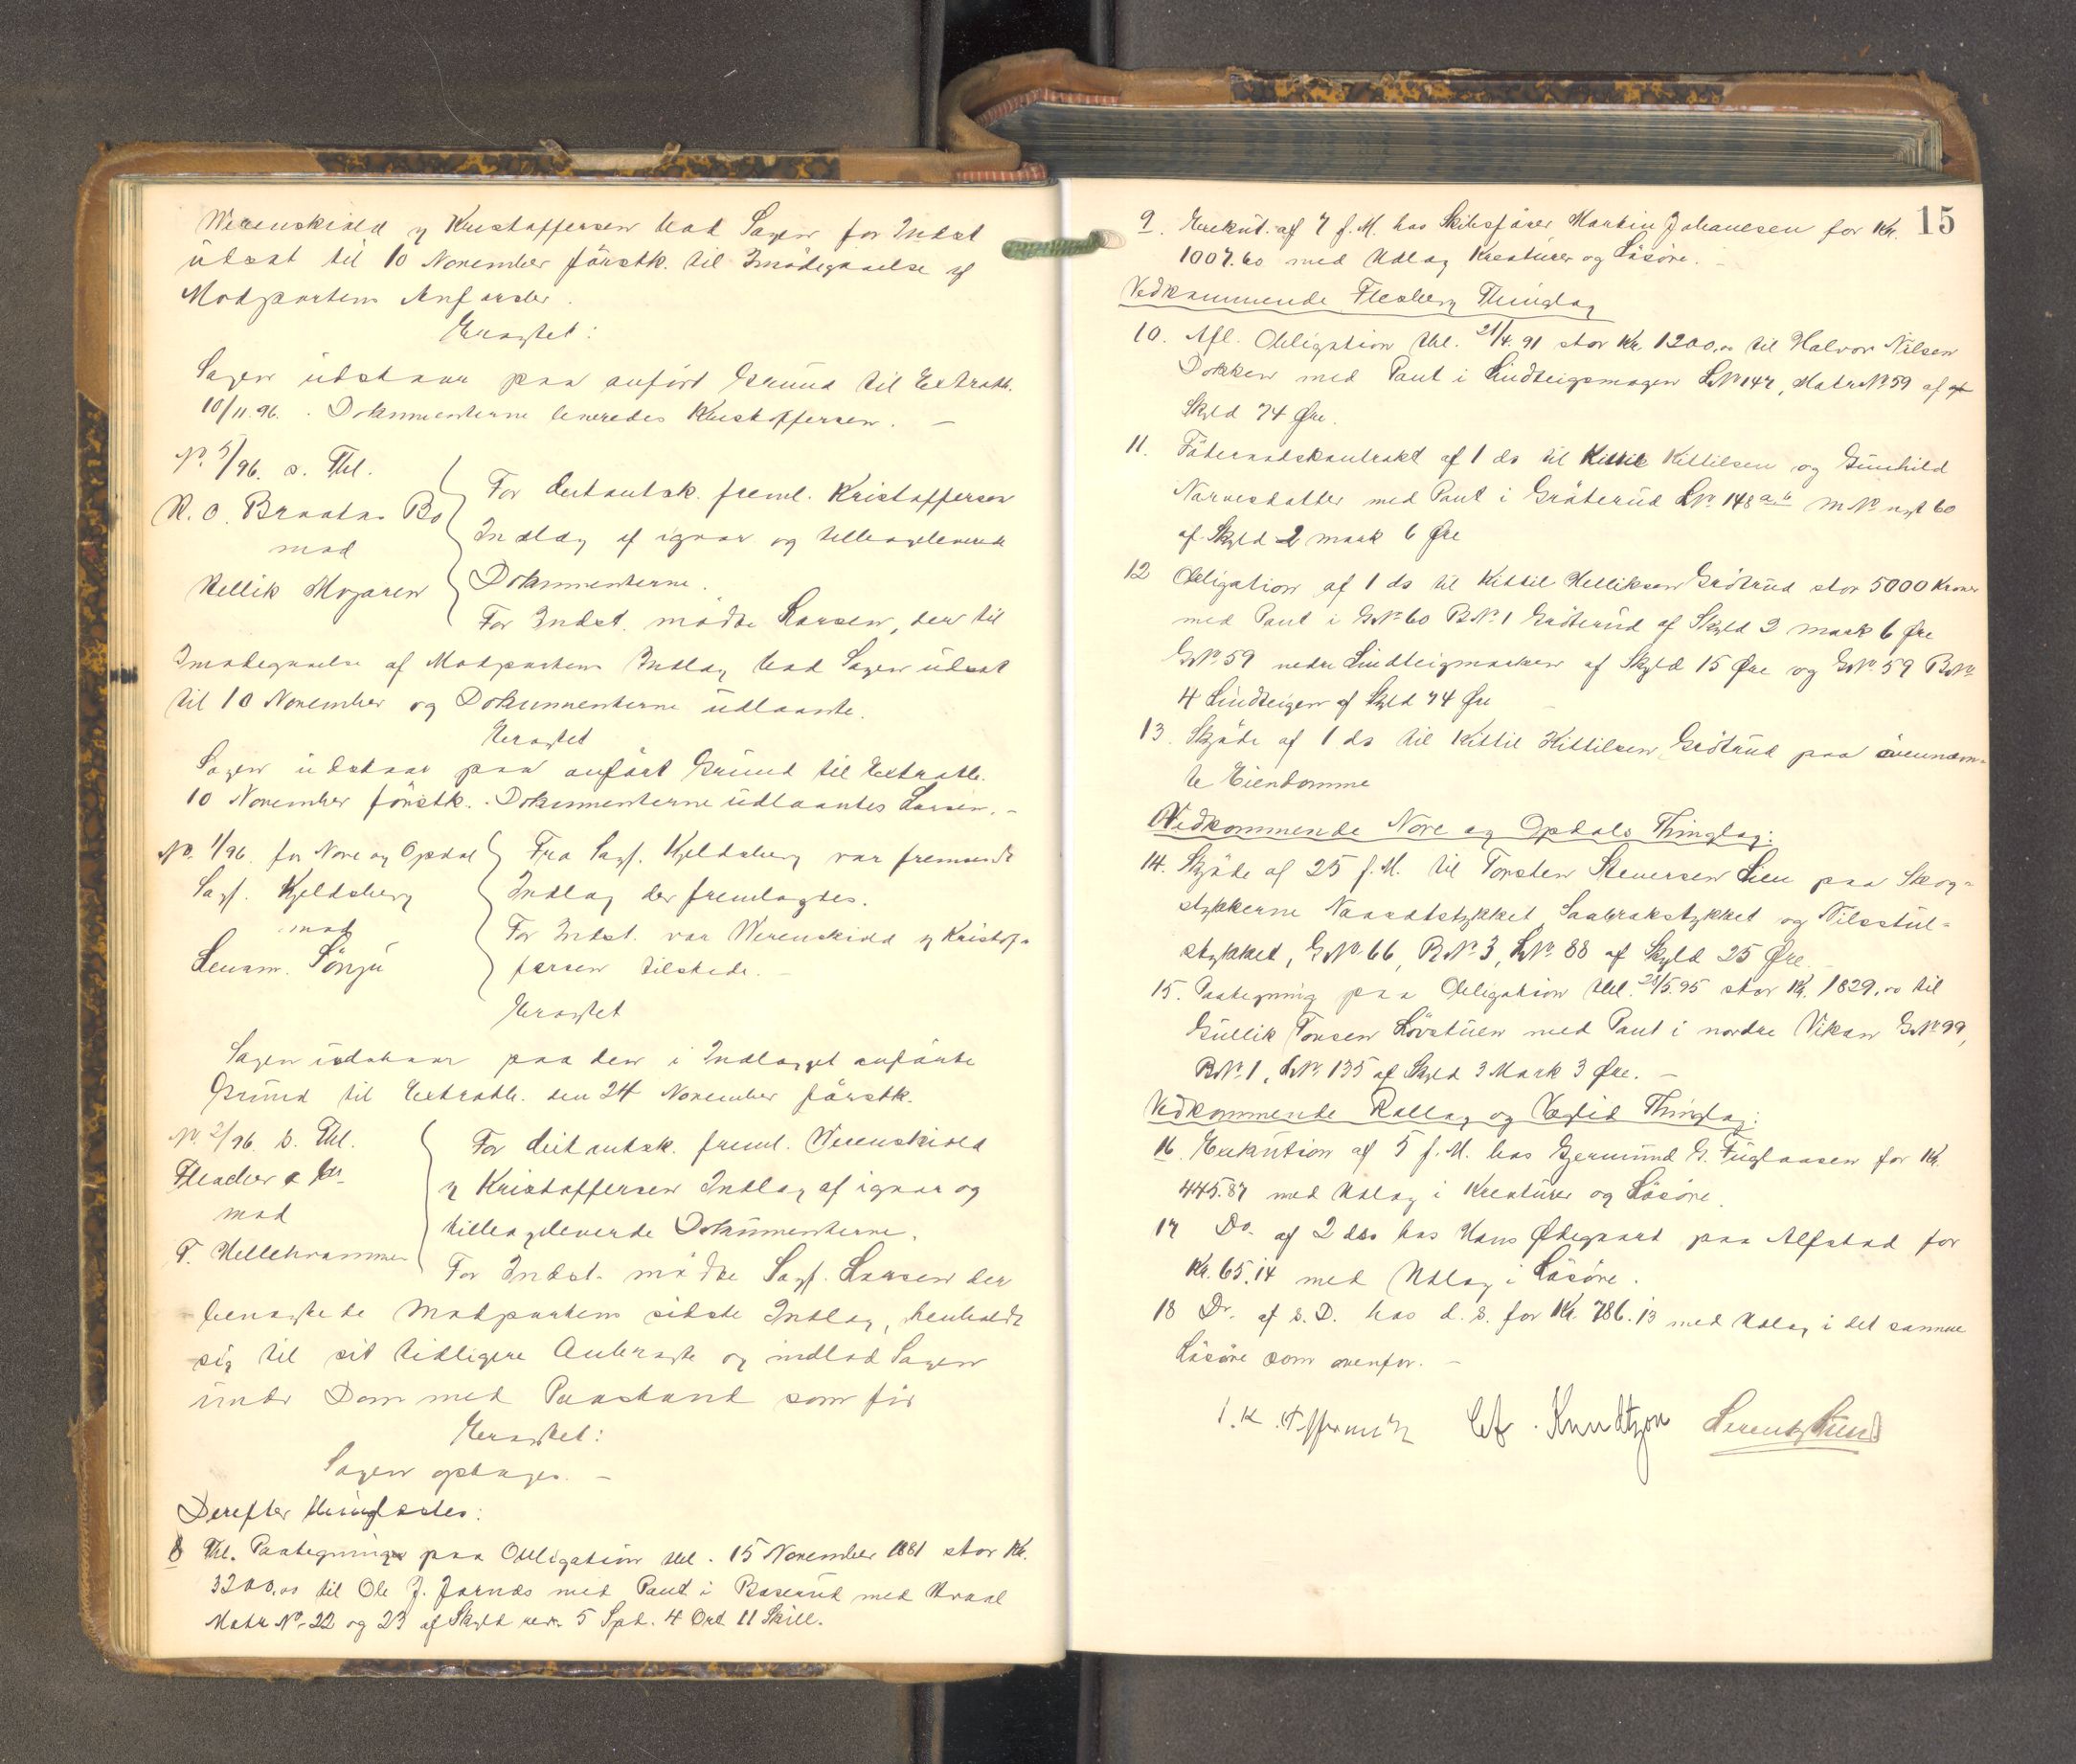 Werenskiold & Kristoffersen bad Sagen for Indst
udsat til 10 November førstk. til Imødegaaelse af
Modpartens Anførsler.
Eragtet:
Sagen udstaar paa anført Grund til Extrath.
10/11.96. Dokumenterne leveredes Kristoffersen. —
No. 5/96. s. Thl.
N. O. Braata Bo
mod
Hellik Mogaren
For Citantsk. freml. Kristoffersen
Indlæg af igaar og tilbageleverede
Dokumenterne.
For Indst. mødte Larsen, der til
Imødegaaelse af Modpartens Indlæg bad Sagen udsat
til 10 November og Dokumenterne udlaante.
Eragtet
Sagen udstaar paa anført Grund til Extrath.
10 November førstk. Dokumenterne udlaantes Larsen. —
No. 1/96. for Nore og Opdal
Sagf. Kjeldsberg
mod
Lensm. Sönju
Fra Sagf. Kjeldsberg var fremsendt
Indlæg der fremlagdes.
For Indst. var Werenskiold & Kristof-
fersen tilstede. —
Eragtet
Sagen udstaar paa den i Indlægget anførte
Grund til Extrath. den 24 November førstk.
No. 2/96. s. Thl.
mod
T. Hellehrammen
For Citantsk. freml. Werenskiold
& Kristoffersen Indlæg af igaar og
tilbageleverede Dokumenterne.
For Indst. mødte Sagf. Larsen der
benægtede Modpartens sidste Indlæg, henholdt
sig til sit tidligere Anbragte og indlod Sagen
under Dom med Paastand som før
Eragtet:
Sagen optages. —
Derefter thinglæstes:
8 Thl. Paategning paa Obligation thl. 15 November 1881 stor Kr.
3200,00 til Ole J. Jornæs med Pant i Baserud med Kvaal
Matr No. 22 og 23 af Skyld rev. 5 Spd. 4 Ort 11 Skill.
15
9. Exekut. af 7 f. M. hos Skibsfører Martin Johanesen for Kr.
1007.60 med Udlæg Kreaturer og Løsøre. —
Vedkommende Flesberg Thinglag
10. Afl. Obligation thl. 21/4.91 stor Kr. 1200,00 til Halvor Nilsen
Dokken med Pant i Lindteigsmogen LNo 147, Matr No 59 af
Skyld 74 Øre.
11. Föderaadskontrakt af 1 ds til Kittil Kittilsen og Gunhild
Narvesdatter med Pant i Gröterud LNo. 148 a,b M No nyt 60
af Skyld 2 mark 6 Øre
12 Obligation af 1 ds til Kittil Helliksen Grötrud stor 5000 Kroner
med Pant i GNo 60 BNo 1 Gröterud af Skyld 2 mark 6 Øre
GNo 59 nedre Lindteigmarken af Skyld 15 Øre og GNo. 59 BNo
4 Lindteigen af Skyld 74 Øre
13. Skjøde af 1 ds til Kittil Kittilsen Grötrud paa ovennævn-
te Eiendomme
Vedkommende Nore og Opdals Thinglag:
14. Skjøde af 25 f. M. til Torsten Stenersen Lien paa Skog-
stykkerne Naasdtstykket, Saabrakstykket og Nilsstul-
stykket, GNo 66, BNo 3, LNo. 88 af Skyld 25 Øre.
15. Paategning paa Obligation thl. 28/5.95 stor Kr. 1829,00 til
Gullik Torsen Lövstuen med Pant i nordre Vikan GNo 99,
BNo. 1, LNo. 135 af Skyld 3 Mark 3 Øre. —
Vedkommende Rollag og Væglid Thinglag:
16. Exekution af 5 f. M. hos Gjermund G. Fuglaasen for Kr.
445.87 med Udlæg i Kreaturer og Løsøre.
17 Do. af 2 ds hos Hans Ødegaard paa Alfstad for
Kr. 65.14 med Udlæg i Løsøre.
18 Do. af s. D. hos d. s. for Kr. 786.13 med Udlæg i det samme
Løsøre som ovenfor. —
Cf. Knudtzon Lorentz Lund